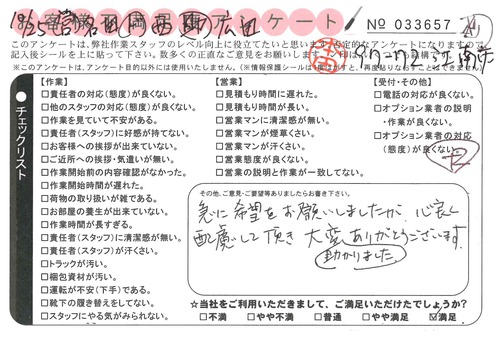 アンケート
No 033657
このアンケートは、弊社作業スタッフのレベル向上に役立てたいと思います。
【作業】
□責任者の対応(態度)が良くない。
□他のスタッフの対応(態度)が良くない。
□作業を見ていて不安がある。
□責任者(スタッフ)に好感が持てない。
□お客様への挨拶が出来ていない。
□ご近所への挨拶・気遣いが無い。
□作業開始前の内容確認がなかった。
□作業開始時間が遅れた。
□荷物の取り扱いが雑である。
□お部屋の養生が出来ていない。
□作業時間が長すぎる。
□責任者(スタッフ)に清潔感が無い。
□責任者(スタッフ)が汗くさい。
□トラックが汚い。
□梱包資材が汚い。
□運転が不安(下手)である。
□靴下の履き替えをしてない。
□スタッフにやる気がみられない。
【営業】
□見積もり時間に遅れた。
□見積もり時間が長い。
□営業マンに清潔感が無い。
□営業マンが煙草くさい。
□営業マンが汗くさい。
□営業態度が良くない。
□営業の説明と作業が一致してない。
【受付・その他】
□電話の対応が良くない。
□オプション業者の説明
・作業が良くない。
□オプション業者の対応
(態度)が良くない。
チェックリスト
その他、ご意見・ご要望等ありましたらお書き下さい。
急に希望をお願いしましたが、心良く
配慮して頂き 大変ありがとうございます。
助かりました
☆当社をご利用いただきまして、ご満足いただけたでしょうか?
□不満 □やや不満 □普通 □やや満足 ☑満足